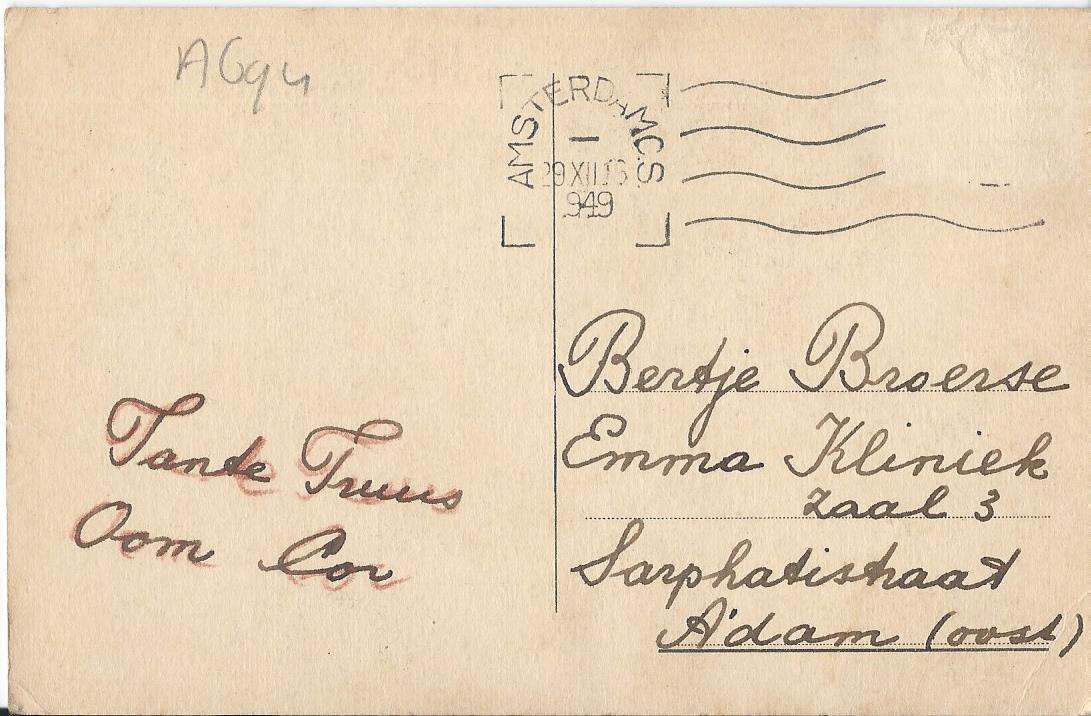 A694
AMSTERDAM C.S
29 XII 16
1949
Bertje Broerse
Emma Kliniek
zaal 3
Sarphatistraat
A'dam (oost)
Tante Truus
Oom Cor